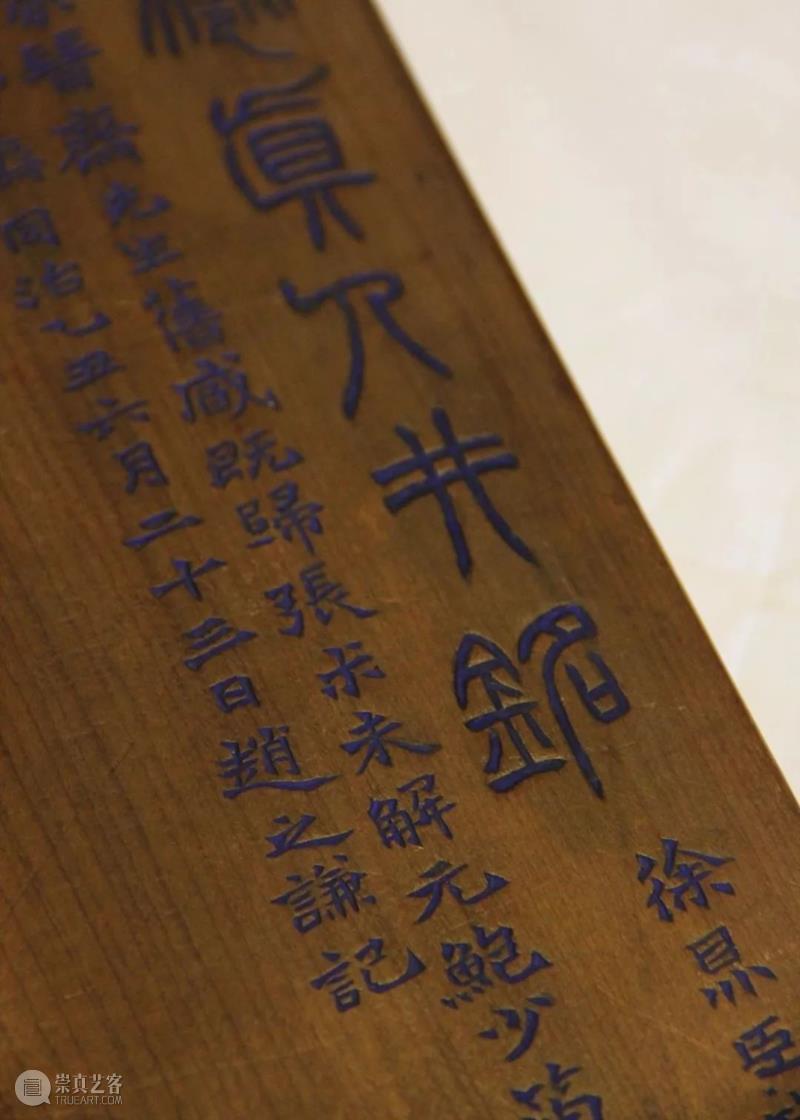 徐
眞 井銘
晉齋先生舊藏既歸張尗未解元鮑少
同治乙丑六月二十三日趙之謙記
崇真艺客
TRUEART.COM